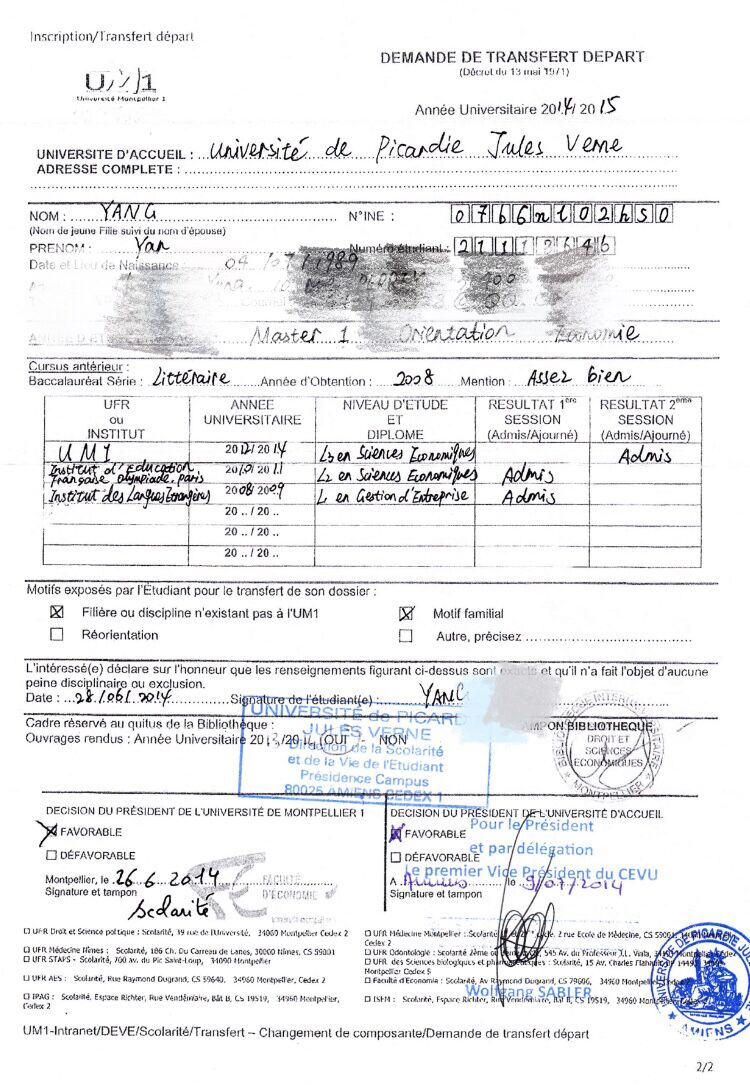 Inscription/Transfert départ
UM1
Université Montpellier 1
DEMANDE DE TRANSFERT DEPART
(Décret du 13 mai 1971)
Année Universitaire 2014/ 2015
UNIVERSITE D'ACCUEIL : Université de Picardie Jules Verne
ADRESSE COMPLETE :
NOM : YANG N°INE : 0766n102h50
(Nom de jeune Fille suivi du nom d'épouse)
PRENOM : Yan Numéro étudiant : 21112646
Date et Lieu de Naissance 04 / 07 / 1989
Master 1 Orientation Economie
Cursus antérieur :
Baccalauréat Série : Littéraire Année d'Obtention : 2008 Mention : Assez bien
UFR ou INSTITUT ANNEE UNIVERSITAIRE NIVEAU D'ETUDE ET DIPLOME RESULTAT 1ère SESSION (Admis/Ajourné) RESULTAT 2ème SESSION (Admis/Ajourné)
UM1 20 / 2014 L3 en Sciences Economiques Admis
Institut d'Education française olympiade, paris 2010/ 2011 L2 en Sciences Economiques Admis
Institut des Langues Etrangères 2008/ 2009 L en Gestion d'Entreprise Admis
20 .. / 20 ..
20 .. / 20 ..
20 .. / 20 ..
Motifs exposés par l'Étudiant pour le transfert de son dossier :
Filière ou discipline n'existant pas à l'UM1 Motif familial
Réorientation Autre, précisez
L'intéressé(e) déclare sur l'honneur que les renseignements figurant ci-dessus sont exacts et qu'il n'a fait l'objet d'aucune
peine disciplinaire ou exclusion.
Date : 28/06/2014 Signature de l'étudiant(e) : YANG
Cadre réservé au quitus de la Bibliothèque :
Ouvrages rendus : Année Universitaire 2013/201 OUI NON
UNIVERSITÉ de PICARD
JULES VERNE
Direction de la Scolarité
et de la Vie de l'Étudiant
Présidence Campus
80025 AMIENS CEDEX 1
TAMPON BIBLIOTHEQUE
DROIT ET
SCIENCES
ECONOMIQUES
MONTPELLIER
DECISION DU PRÉSIDENT DE L'UNIVERSITÉ DE MONTPELLIER 1
FAVORABLE
DÉFAVORABLE
Montpellier, le 26.6.2014
Signature et tampon
Scolarité
FACULTÉ
D'ÉCONOMIE
DECISION DU PRÉSIDENT DE L'UNIVERSITÉ D'ACCUEIL
FAVORABLE
DÉFAVORABLE
A Amiens le 9/07/2014
Signature et tampon
Pour le Président
et par délégation
Le premier Vice Président du CEVU
Wolfgang SABLER
UFR Droit et Science politique : Scolarité, 39 rue de l'Université, 34060 Montpellier Cedex 2
UFR Médecine Nîmes : Scolarité, 186 Ch. Du Carreau de Lanes, 30000 Nîmes, CS 59001
UFR STAPS - Scolarité, 700 av. du Pic Saint-Loup, 34090 Montpellier
UFR AES : Scolarité, Rue Raymond Dugrand, CS 59640, 34960 Montpellier, Cedex 2
IPAG : Scolarité, Espace Richter, Rue Vendémiaire, Bât B, CS 19519, 34960 Montpellier, Cedex 2
UFR Médecine Montpellier : Scolarité 2 rue Ecole de Médecine, CS 59001, Montpellier Cedex 2
UFR Odontologie : Scolarité 2ème 545 Av. du Professeur J.L. Viala, Montpellier Cedex
UFR des Sciences biologiques et pharmaceutiques : Scolarité, 15 Av. Charles Flahault, Montpellier Cedex 5
Faculté d'Economie : Scolarité, Av Raymond Dugrand, CS 79606, 34960 Montpellier
ISEM : Scolarité, Espace Richter, Rue Vendémiaire, Bât B, CS 19519, 34960
UNIVERSITE DE PICARDIE JULES
AMIENS
UM1-Intranet/DEVE/Scolarité/Transfert – Changement de composante/Demande de transfert départ
2/2